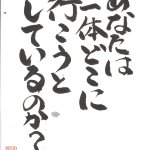 あなたは
一体どこに
行こうと
しているのか?